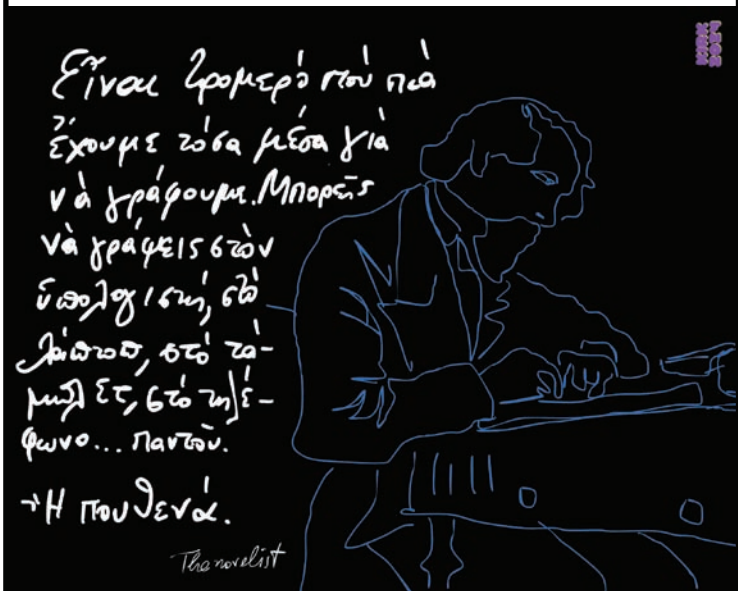 Εἶναι τρομερὸ ποὺ πιὰ
ἔχουμε τόσα μέσα γιὰ
νὰ γράφουμε. Μπορεῖς
νὰ γράψεις στὸν
ὑπολογιστή, στὸ
λάπτοπ, στὸ τά-
μπλετ, στὸ τηλέ-
φωνο... παντοῦ.
Ἢ πουθενά.
The novelist